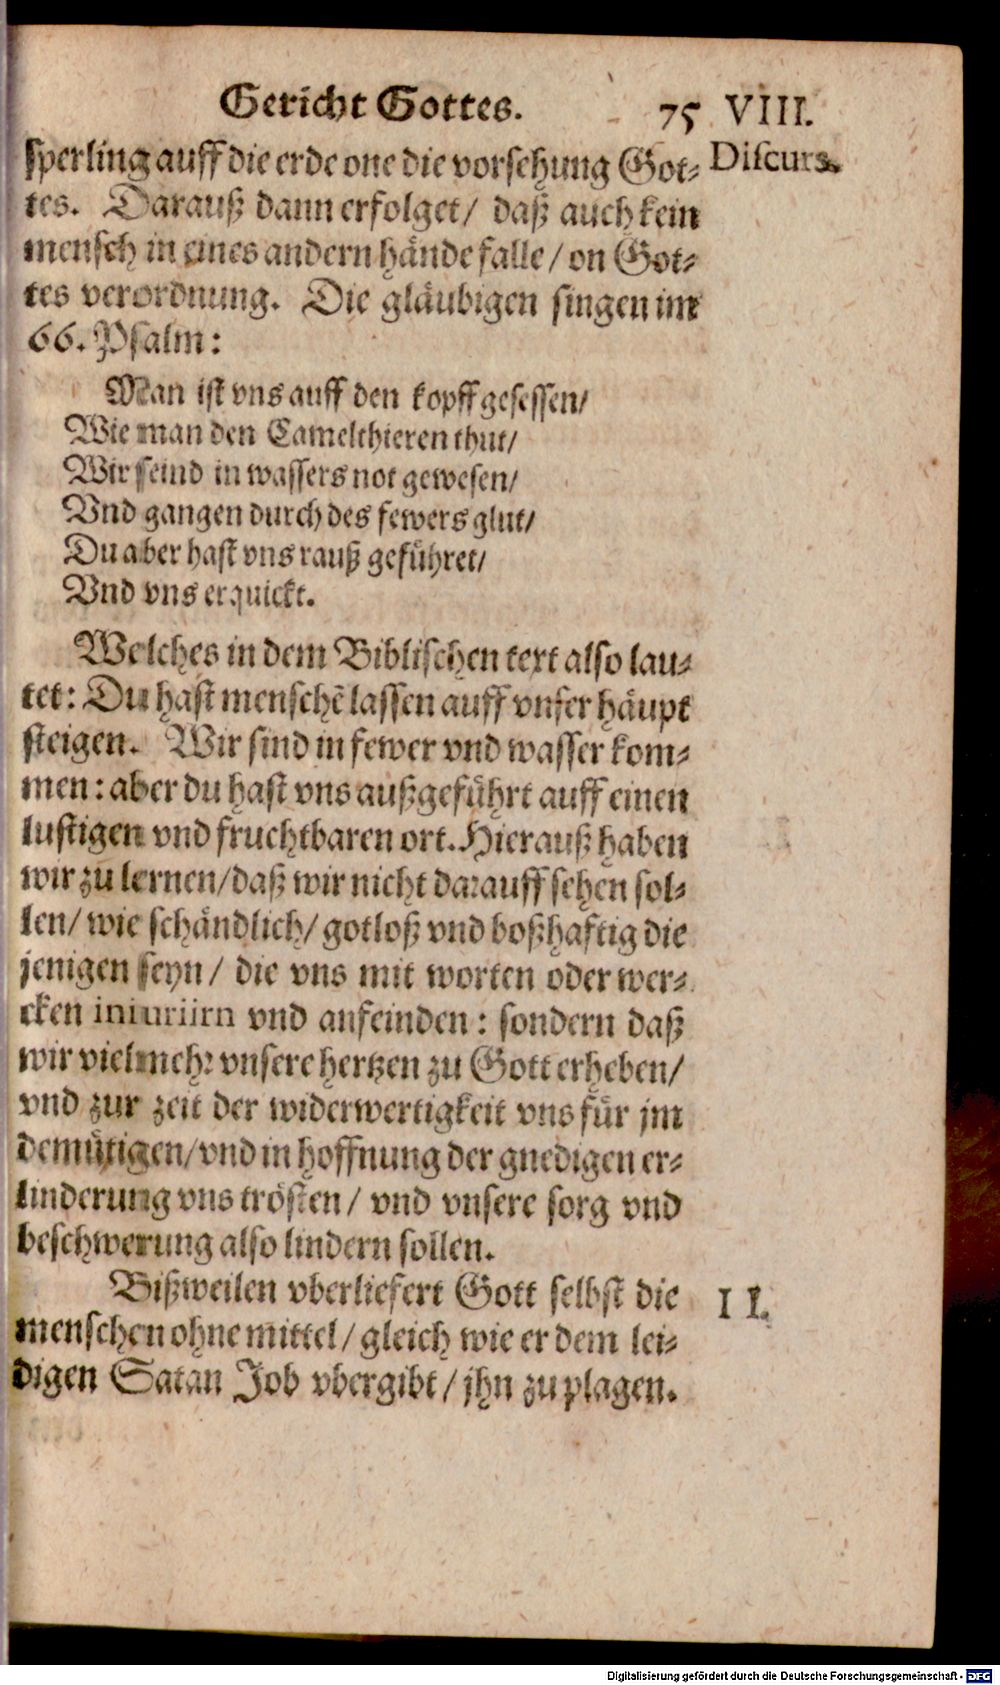 Gericht Gottes. 75 VIII.
Discurs.
sperling auff die erde one die vorsehung Got-
tes. Darauß dann erfolget/ daß auch kein
mensch in eines andern hände falle/ on Got-
tes verordnung. Die gläubigen singen im
66. Psalm:
Man ist vns auff den kopff gesessen/
Wie man den Camelthieren thut/
Wir seind in wassers not gewesen/
Vnd gangen durch des fewers glut/
Du aber hast vns rauß geführet/
Vnd vns erquickt.
Welches in dem Biblischen text also lau-
tet: Du hast menschẽ lassen auff vnser häupt
steigen. Wir sind in fewer vnd wasser kom-
men: aber du hast vns außgeführt auff einen
lustigen vnd fruchtbaren ort. Hierauß haben
wir zu lernen/ daß wir nicht darauff sehen sol-
len/ wie schändlich/ gotloß vnd boßhaftig die
jenigen seyn/ die vns mit worten oder wer-
cken iniuriirn vnd anfeinden: sondern daß
wir vielmehr vnsere hertzen zu Gott erheben/
vnd zur zeit der widerwertigkeit vns für jm
demütigen/ vnd in hoffnung der gnedigen er-
linderung vns trösten/ vnd vnsere sorg vnd
beschwerung also lindern sollen.
Bißweilen vberliefert Gott selbst die II.
menschen ohne mittel/ gleich wie er dem lei-
digen Satan Job vbergibt/ jhn zu plagen.
Digitalisierung gefördert durch die Deutsche Forschungsgemeinschaft - DFG